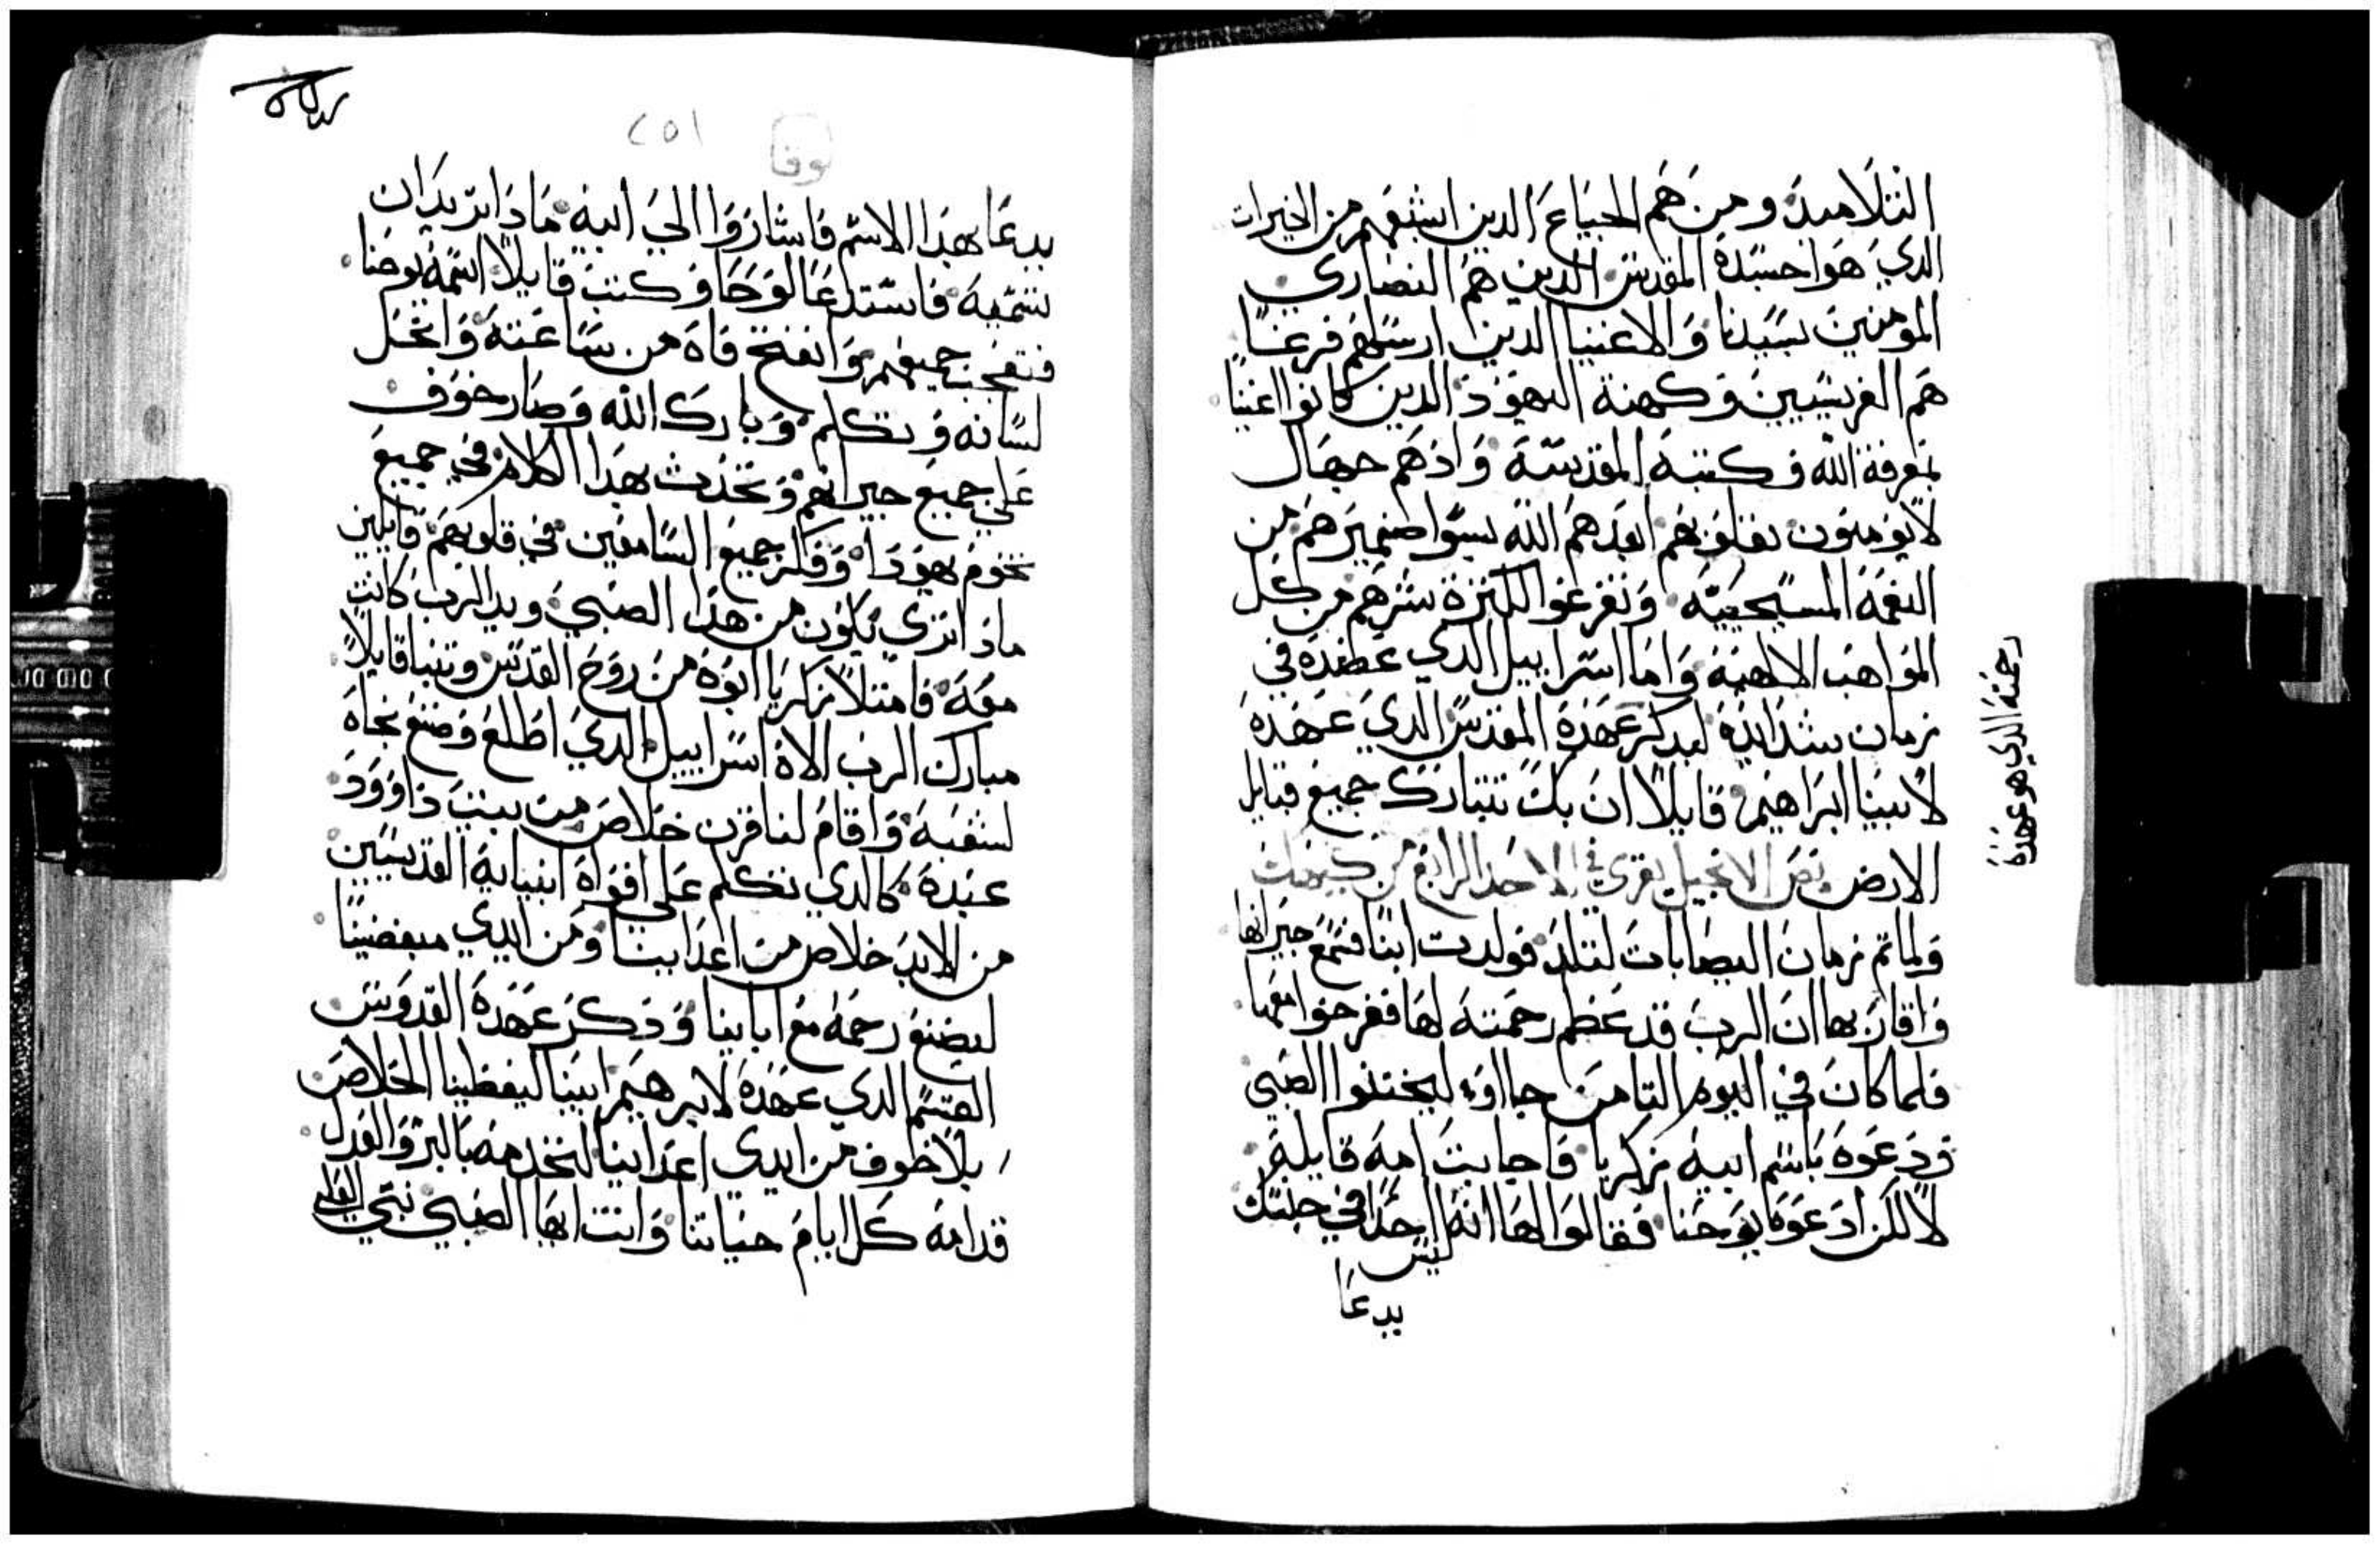 التلاميد ومن هم الجياع الدين اشبعهم من الخيرات
الدي هو جسده المقدس الدين هم النصاري
المومنين بسيدنا والاغنيا الدين ارسلهم فرغًا
هم الفريسيين وكهنة اليهود الدين كانوا اغنيا
بمعرفة الله وكتبه المقدسة واذ هم جهال
لا يومنون بقلوبهم ابعدهم الله بسوا ضميرهم من
النعمة المسيحيية وتفرغوا لكثرة شرهم من كل
المواهب الالهية واما اسراييل الدي عضده في
زمان شدايده لعدكر عهده المقدس الدي عهده
لابينا ابراهيم قايلًا ان بك تتبارك جميع قبايل
رحمته الدي هو عهده
الارض نص الانجيل يقري في الاحد الرابع من كيهك
ولما تم زمان اليصابات لتلد فولدت ابنا فسمع جيرانها
واقاربها ان الرب قد عظم رحمته لها ففرحوا معها
فلما كان في اليوم التامن جااوه ليختنوا الصبي
ودعوه باسم ابيه زكريا فاجابت امه قايله
لا لكن ادعوه يوحنا فقالوا لها انه ليس احدا في جنسك
يدعا
٢٥١
لوقا
يدعا بهدا الاسم فاشاروا الي ابيه ما دا تريد ان
تسميه فاستدعا لوحا وكتب قايلًا اسمه يوحنا
فتعجب جميعهم وانفتح فاه من ساعته وانحل
لسانه وتكلم وبارك الله وصار خوف
علي جميع جيرانهم وتحدث بهدا الكلام في جميع
تخوم يهودا وفكر جميع السامعين في قلوبهم قايلين
ماذا تري يكون من هدا الصبي ويد الرب كانت
معه فامتلا زكريا ابوه من روح القدس وتنبا قايلًا
مبارك الرب الاه اسراييل الدي اطلع وصنع نجاه
لشعبه واقام لنا قرن خلاص من بيت داوود
عبده كالدي تكلم علي افواه انبيايه القديسين
من الابد خلاص من اعدايينا ومن ايدي مبغضينا
ليصنع رحمه مع ابايينا ودكر عهده القدوس
القسم الدي عهده لابرهيم ابينا ليعطينا الخلاص
بلا خوف من ايدي اعدايينا لنخدمه بالبر والعدل
قدامه كل ايام حياتنا وانت ايها الصبي نبي العلي